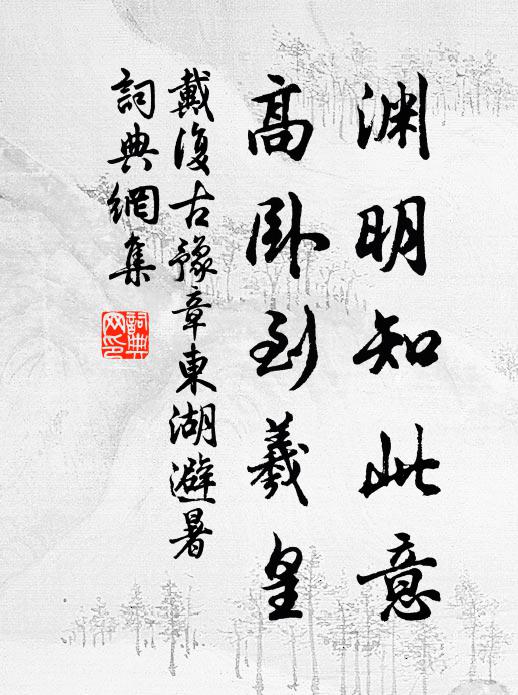 渊明知此意
高卧到羲皇
戴復古豫章東湖避暑
詞典網集
詞典
网印